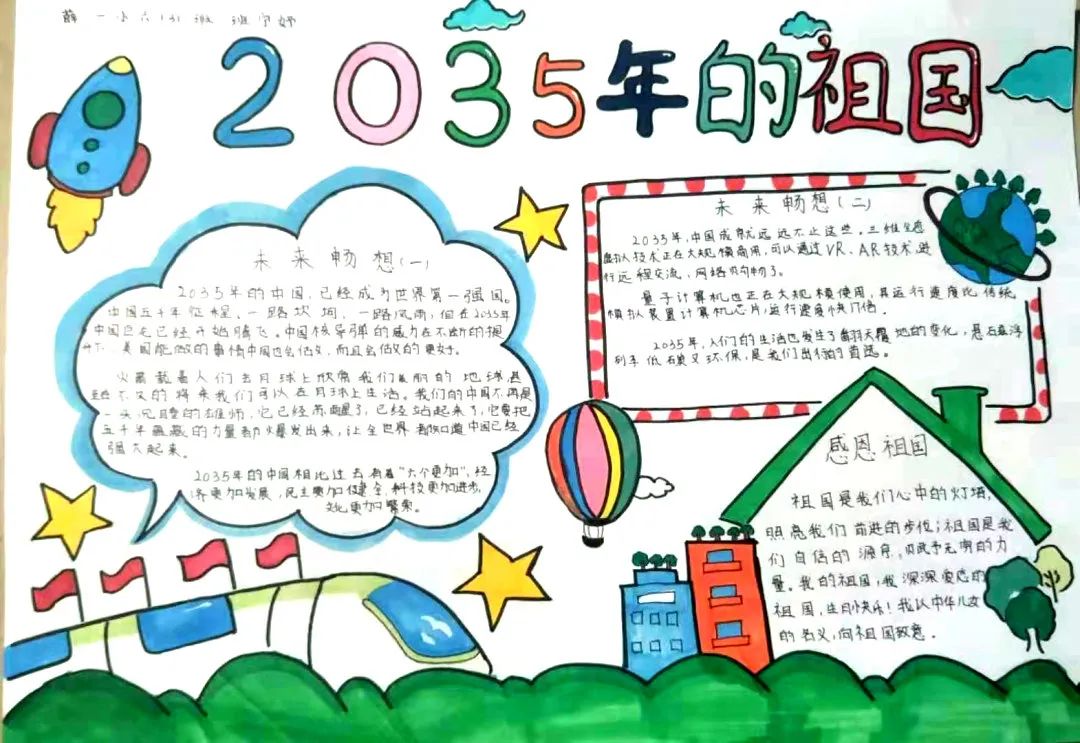 薛一小六(3)班 班宇妤
2035年的祖国
未来畅想(一)
2035年的中国，已经成为世界第一强国。
中国五千年征程，一路坎坷，一路风雨；但在2035年
中国已经开始腾飞。中国核导弹的威力在不断的提
升。美国能做的事情中国也会做，而且会做的更好。
火箭载着人们去月球上欣赏我们美丽的地球，甚
至不久的将来我们可以在月球上生活。我们的中国不再是
一头沉睡的雄师，它已经苏醒了，已经站起来了，它要把
五千年蕴藏的力量都爆发出来，让全世界都知道中国已经
强大起来。
2035年的中国相比过去有着“六个更加”，经
济更加发展，民主更加健全，科技更加进步，
文化更加繁荣。
未来畅想(二)
2035年，中国成就远远不止这些，三维全息
虚拟技术正在大规模商用，可以通过VR、AR技术进
行远程交流，网络购物了。
量子计算机也正在大规模使用，其运行速度比传统
模拟装置计算机芯片，运行速度快几倍。
2035年，人们的生活也发生了翻天覆地的变化，悬磁浮
列车低碳又环保，是我们出行的首选。
感恩祖国
祖国是我们心中的灯塔，
照亮我们前进的步伐；祖国是我
们自信的源泉，赋予无穷的力
量。我的祖国，我深深爱恋的
祖国，生日快乐！我以中华儿女
的名义，向祖国致意。